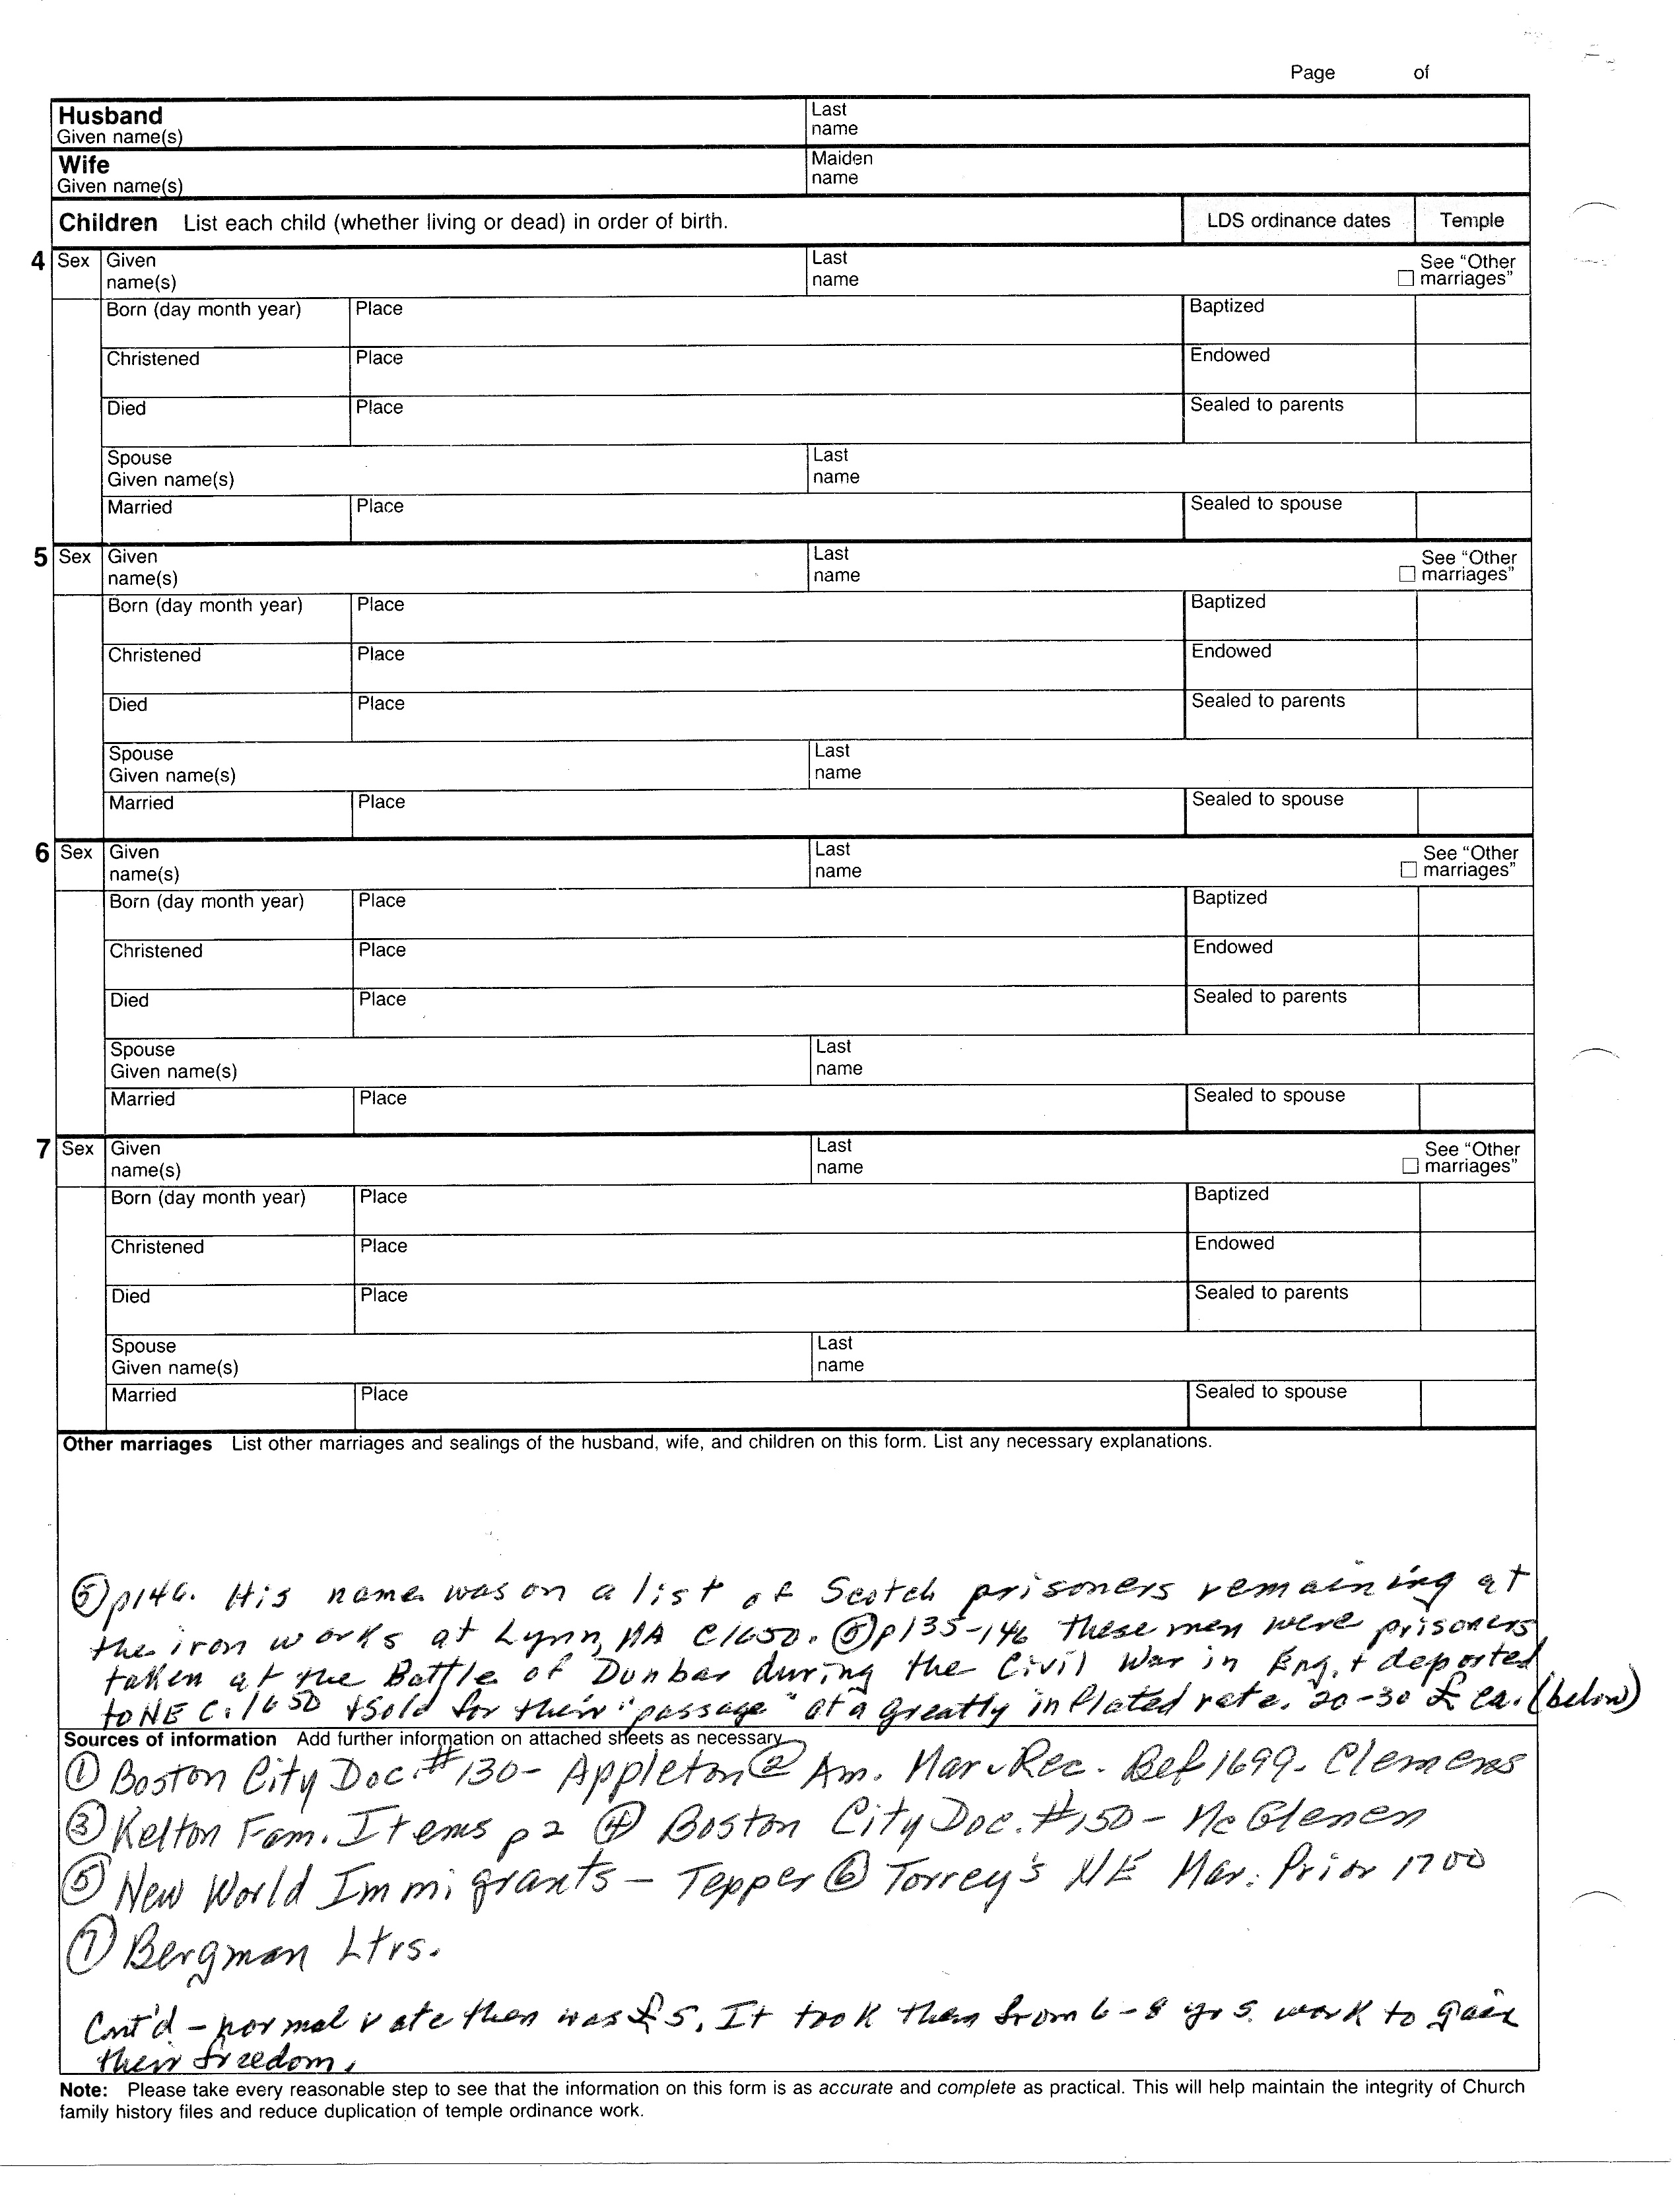 Page of
Husband
Given name(s)
Last
name
Wife
Given name(s)
Maiden
name
Children List each child (whether living or dead) in order of birth.
LDS ordinance dates
Temple
4 Sex
Given
name(s)
Last
name
See "Other
marriages"
Born (day month year)
Place
Baptized
Christened
Place
Endowed
Died
Place
Sealed to parents
Spouse
Given name(s)
Last
name
Married
Place
Sealed to spouse
5 Sex
Given
name(s)
Last
name
See "Other
marriages"
Born (day month year)
Place
Baptized
Christened
Place
Endowed
Died
Place
Sealed to parents
Spouse
Given name(s)
Last
name
Married
Place
Sealed to spouse
6 Sex
Given
name(s)
Last
name
See "Other
marriages"
Born (day month year)
Place
Baptized
Christened
Place
Endowed
Died
Place
Sealed to parents
Spouse
Given name(s)
Last
name
Married
Place
Sealed to spouse
7 Sex
Given
name(s)
Last
name
See "Other
marriages"
Born (day month year)
Place
Baptized
Christened
Place
Endowed
Died
Place
Sealed to parents
Spouse
Given name(s)
Last
name
Married
Place
Sealed to spouse
Other marriages List other marriages and sealings of the husband, wife, and children on this form. List any necessary explanations.
⑤ p146. His name was on a list of Scotch prisoners remaining at
the iron works at Lynn, MA C1650. ⑤ p135-146 these men were prisoners
taken at the Battle of Dunbar during the Civil War in Eng. + deported
to NE C.1650 + Sold for their "passage" at a greatly inflated rate. 20-30 £ ea. (below)
Sources of information Add further information on attached sheets as necessary.
① Boston City Doc. #130- Appleton ② Am. Mar. Rec. Bef 1699- Clemens
③ Kelton Fam. Items p 2 ④ Boston City Doc. #150- McGlenen
⑤ New World Immigrants - Tepper ⑥ Torrey's NE Mar. Prior 1700
⑦ Bergman Ltrs.
Cont'd - normal rate then was £5. It took them from 6-8 yrs. work to gain
their freedom.
Note: Please take every reasonable step to see that the information on this form is as accurate and complete as practical. This will help maintain the integrity of Church
family history files and reduce duplication of temple ordinance work.